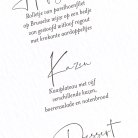 Rolletje van parelhoenfilet
op Brusselse wijze op een bedje
van gestoofd witloof nagout
met krokante aardappeltjes
Kazen
Kaasplateau met vijf
verschillende kazen,
boerensalade en notenbrood
Dessert